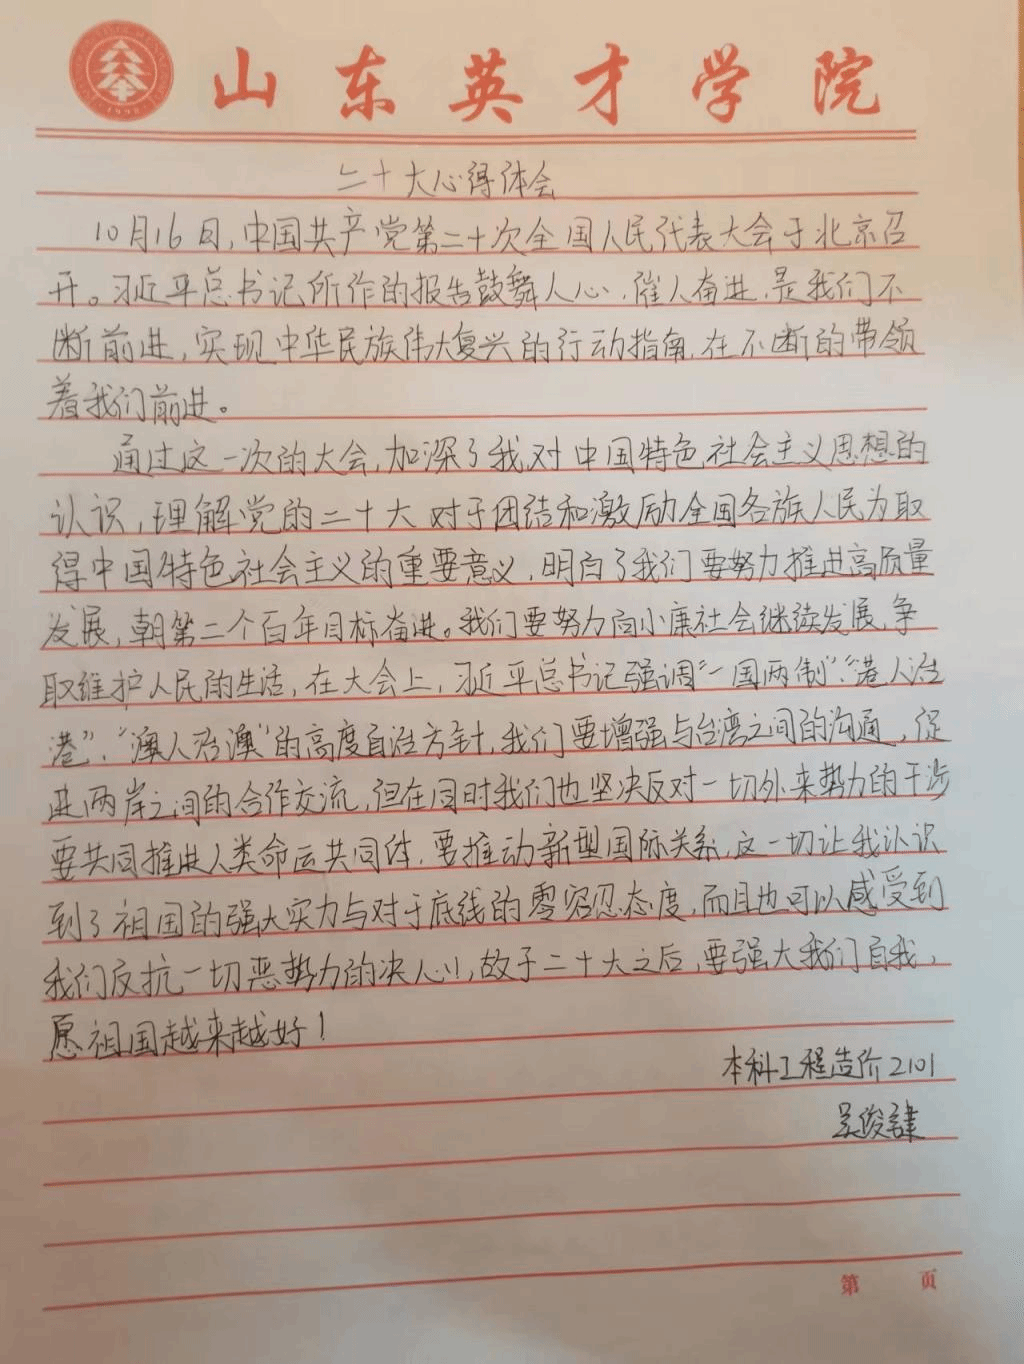 山东英才学院
1998
二十大心得体会
10月16日,中国共产党第二十次全国人民代表大会于北京召
开。习近平总书记所作的报告鼓舞人心,催人奋进,是我们不
断前进,实现中华民族伟大复兴的行动指南,在不断的带领
着我们前进。
通过这一次的大会,加深了我对中国特色社会主义思想的
认识,理解党的二十大对于团结和激励全国各族人民为取
得中国特色社会主义的重要意义,明白了我们要努力推进高质量
发展,朝第二个百年目标奋进。我们要努力向小康社会继续发展,争
取维护人民的生活,在大会上,习近平总书记强调“一国两制”、“港人治
港”、“澳人治澳”的高度自治方针,我们要增强与台湾之间的沟通,促
进两岸之间的合作交流,但在同时我们也坚决反对一切外来势力的干涉
要共同推进人类命运共同体,要推动新型国际关系,这一切让我认识
到了祖国的强大实力与对于底线的零容忍态度,而且也可以感受到
我们反抗一切恶势力的决心!,故于二十大之后,要强大我们自我,
愿祖国越来越好!
本科工程造价2101
吴俊
第 页